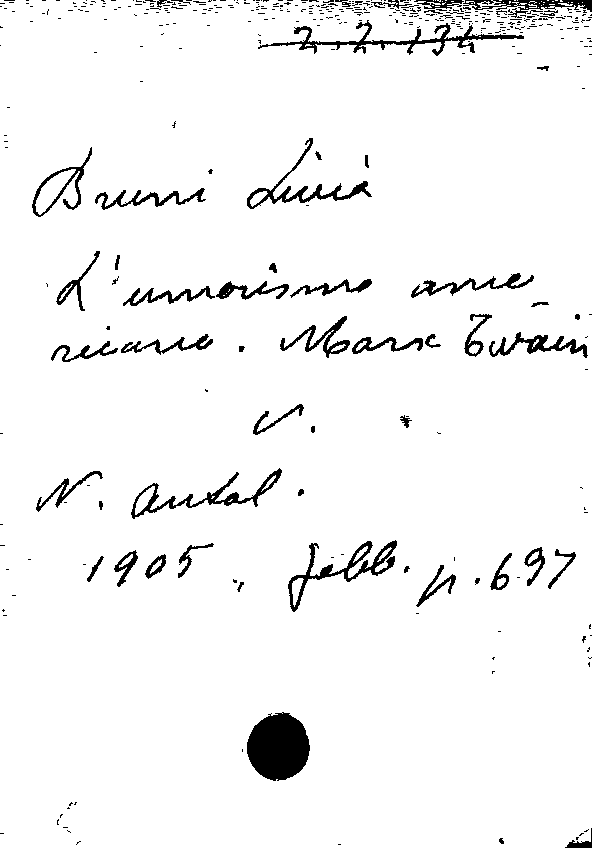 2.2.134
Bruni Livia
L'umorismo ame
ricano. Mark Twain
v.
N. Antol.
1905, febb. p. 697